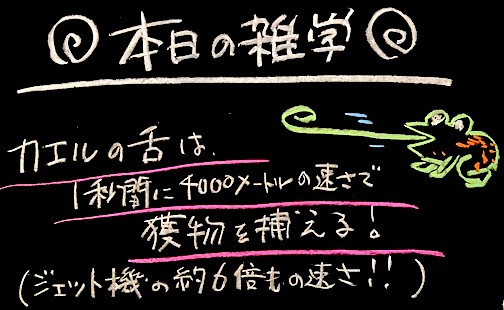 本日の雑学
カエルの舌は、
1秒間に4000メートルの速さで
獲物を捕える!
(ジェット機の約6倍もの速さ!!)